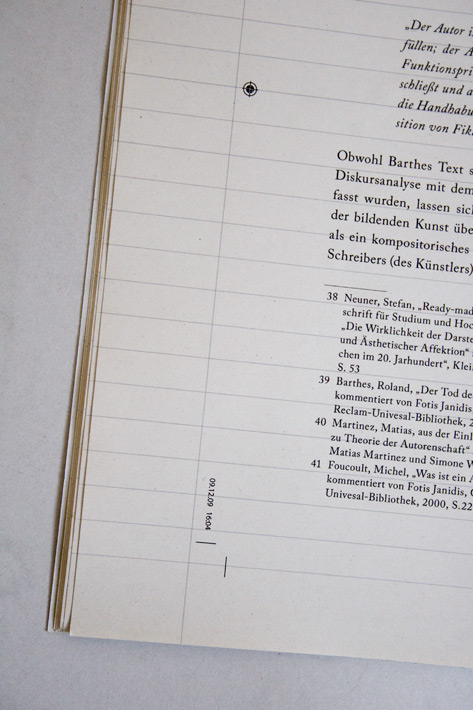 „Der Autor i
füllen; der A
Funktionspri
schließt und a
die Handhabu
sition von Fik
Obwohl Barthes Text s
Diskursanalyse mit dem
fasst wurden, lassen sic
der bildenden Kunst übe
als ein kompositorisches
Schreibers (des Künstlers)
38 Neuner, Stefan, „Ready-mad
schrift für Studium und Hoc
„Die Wirklichkeit der Darste
und Ästhetischer Affektion“
chen im 20. Jarhundert“, Klei
S. 53
39 Barthes, Roland, „Der Tod de
kommentiert von Fotis Janidis,
Reclam-Univesal-Bibliothek, 2
40 Martinez, Matias, aus der Einl
zu Theorie der Autorenschaft“
Matias Martinez und Simone W
41 Foucoult, Michel, „Was ist ein A
kommentiert von Fotis Janidis,
Univesal-Bibliothek, 2000, S.22
09.12.09 16:04